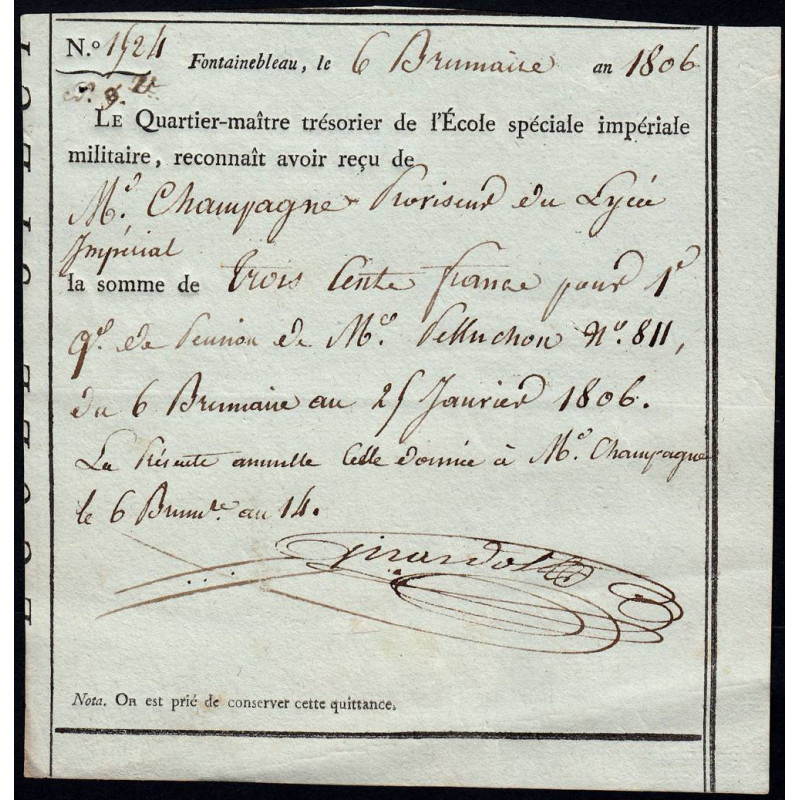 N.º 1524
Fontainebleau, le 6 Brumaire an 1806
LE Quartier-maître trésorier de l'École spéciale impériale
militaire, reconnaît avoir reçu de
Mr. Champagne Proviseur du Lycée
Impérial
la somme de trois Cents francs pour 1er
qer. de Pension de Mr. Pelluchon Nº. 811,
du 6 Brumaire au 25 Janvier 1806.
La Présente annulle Celle donnée à Mr. Champagne
le 6 Brumre. an 14.
Girardot
Nota. On est prié de conserver cette quittance.